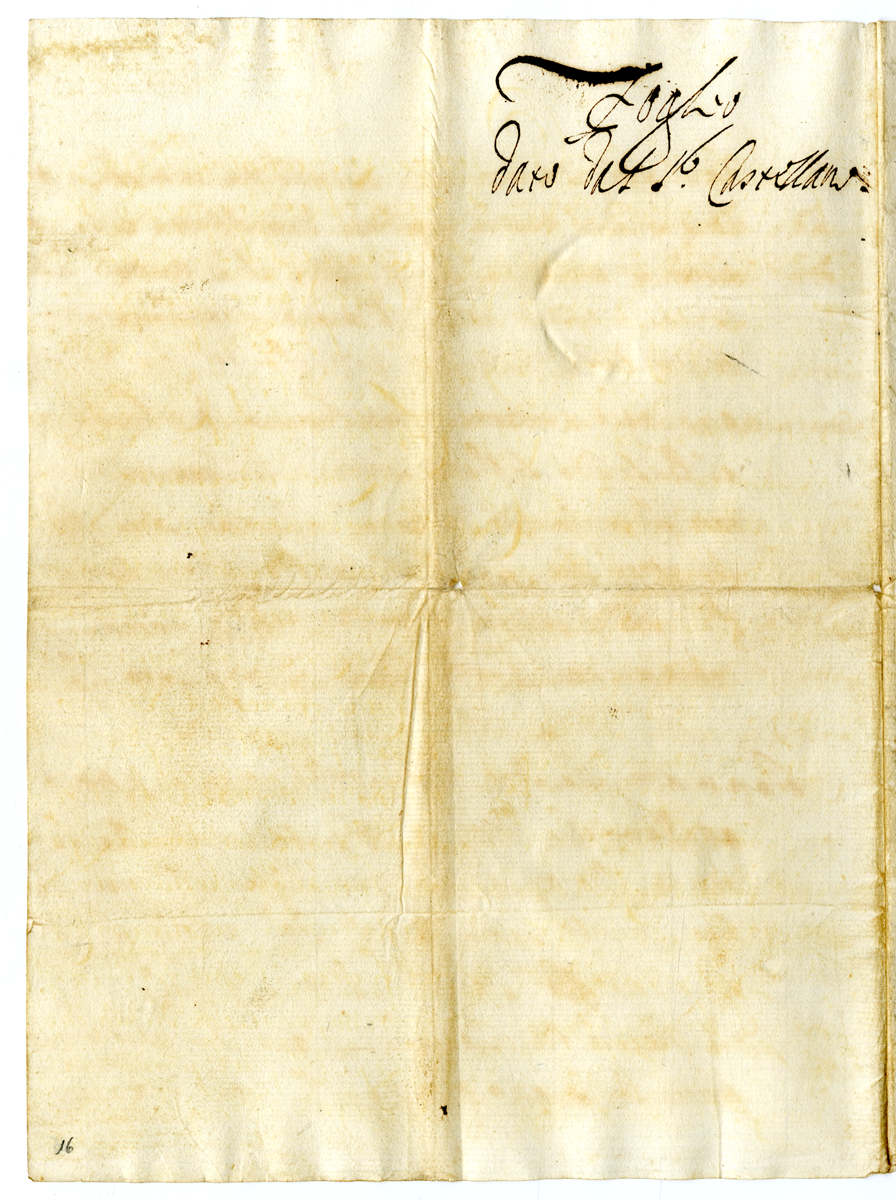 Foglio
dato dal S.r Castellano.
16